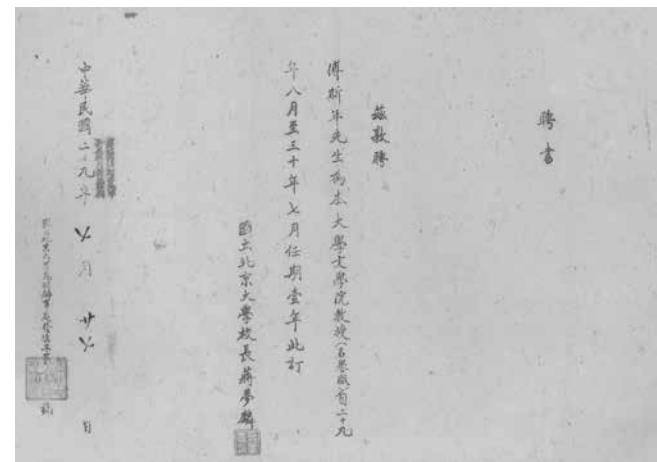 聘書
茲敦聘
傅斯年先生為本大學文學院教授（名譽職）自二十九
年八月至三十年七月任期壹年此訂
國立北京大學校長蔣夢麟
中華民國二十九年 六月 廿六 日